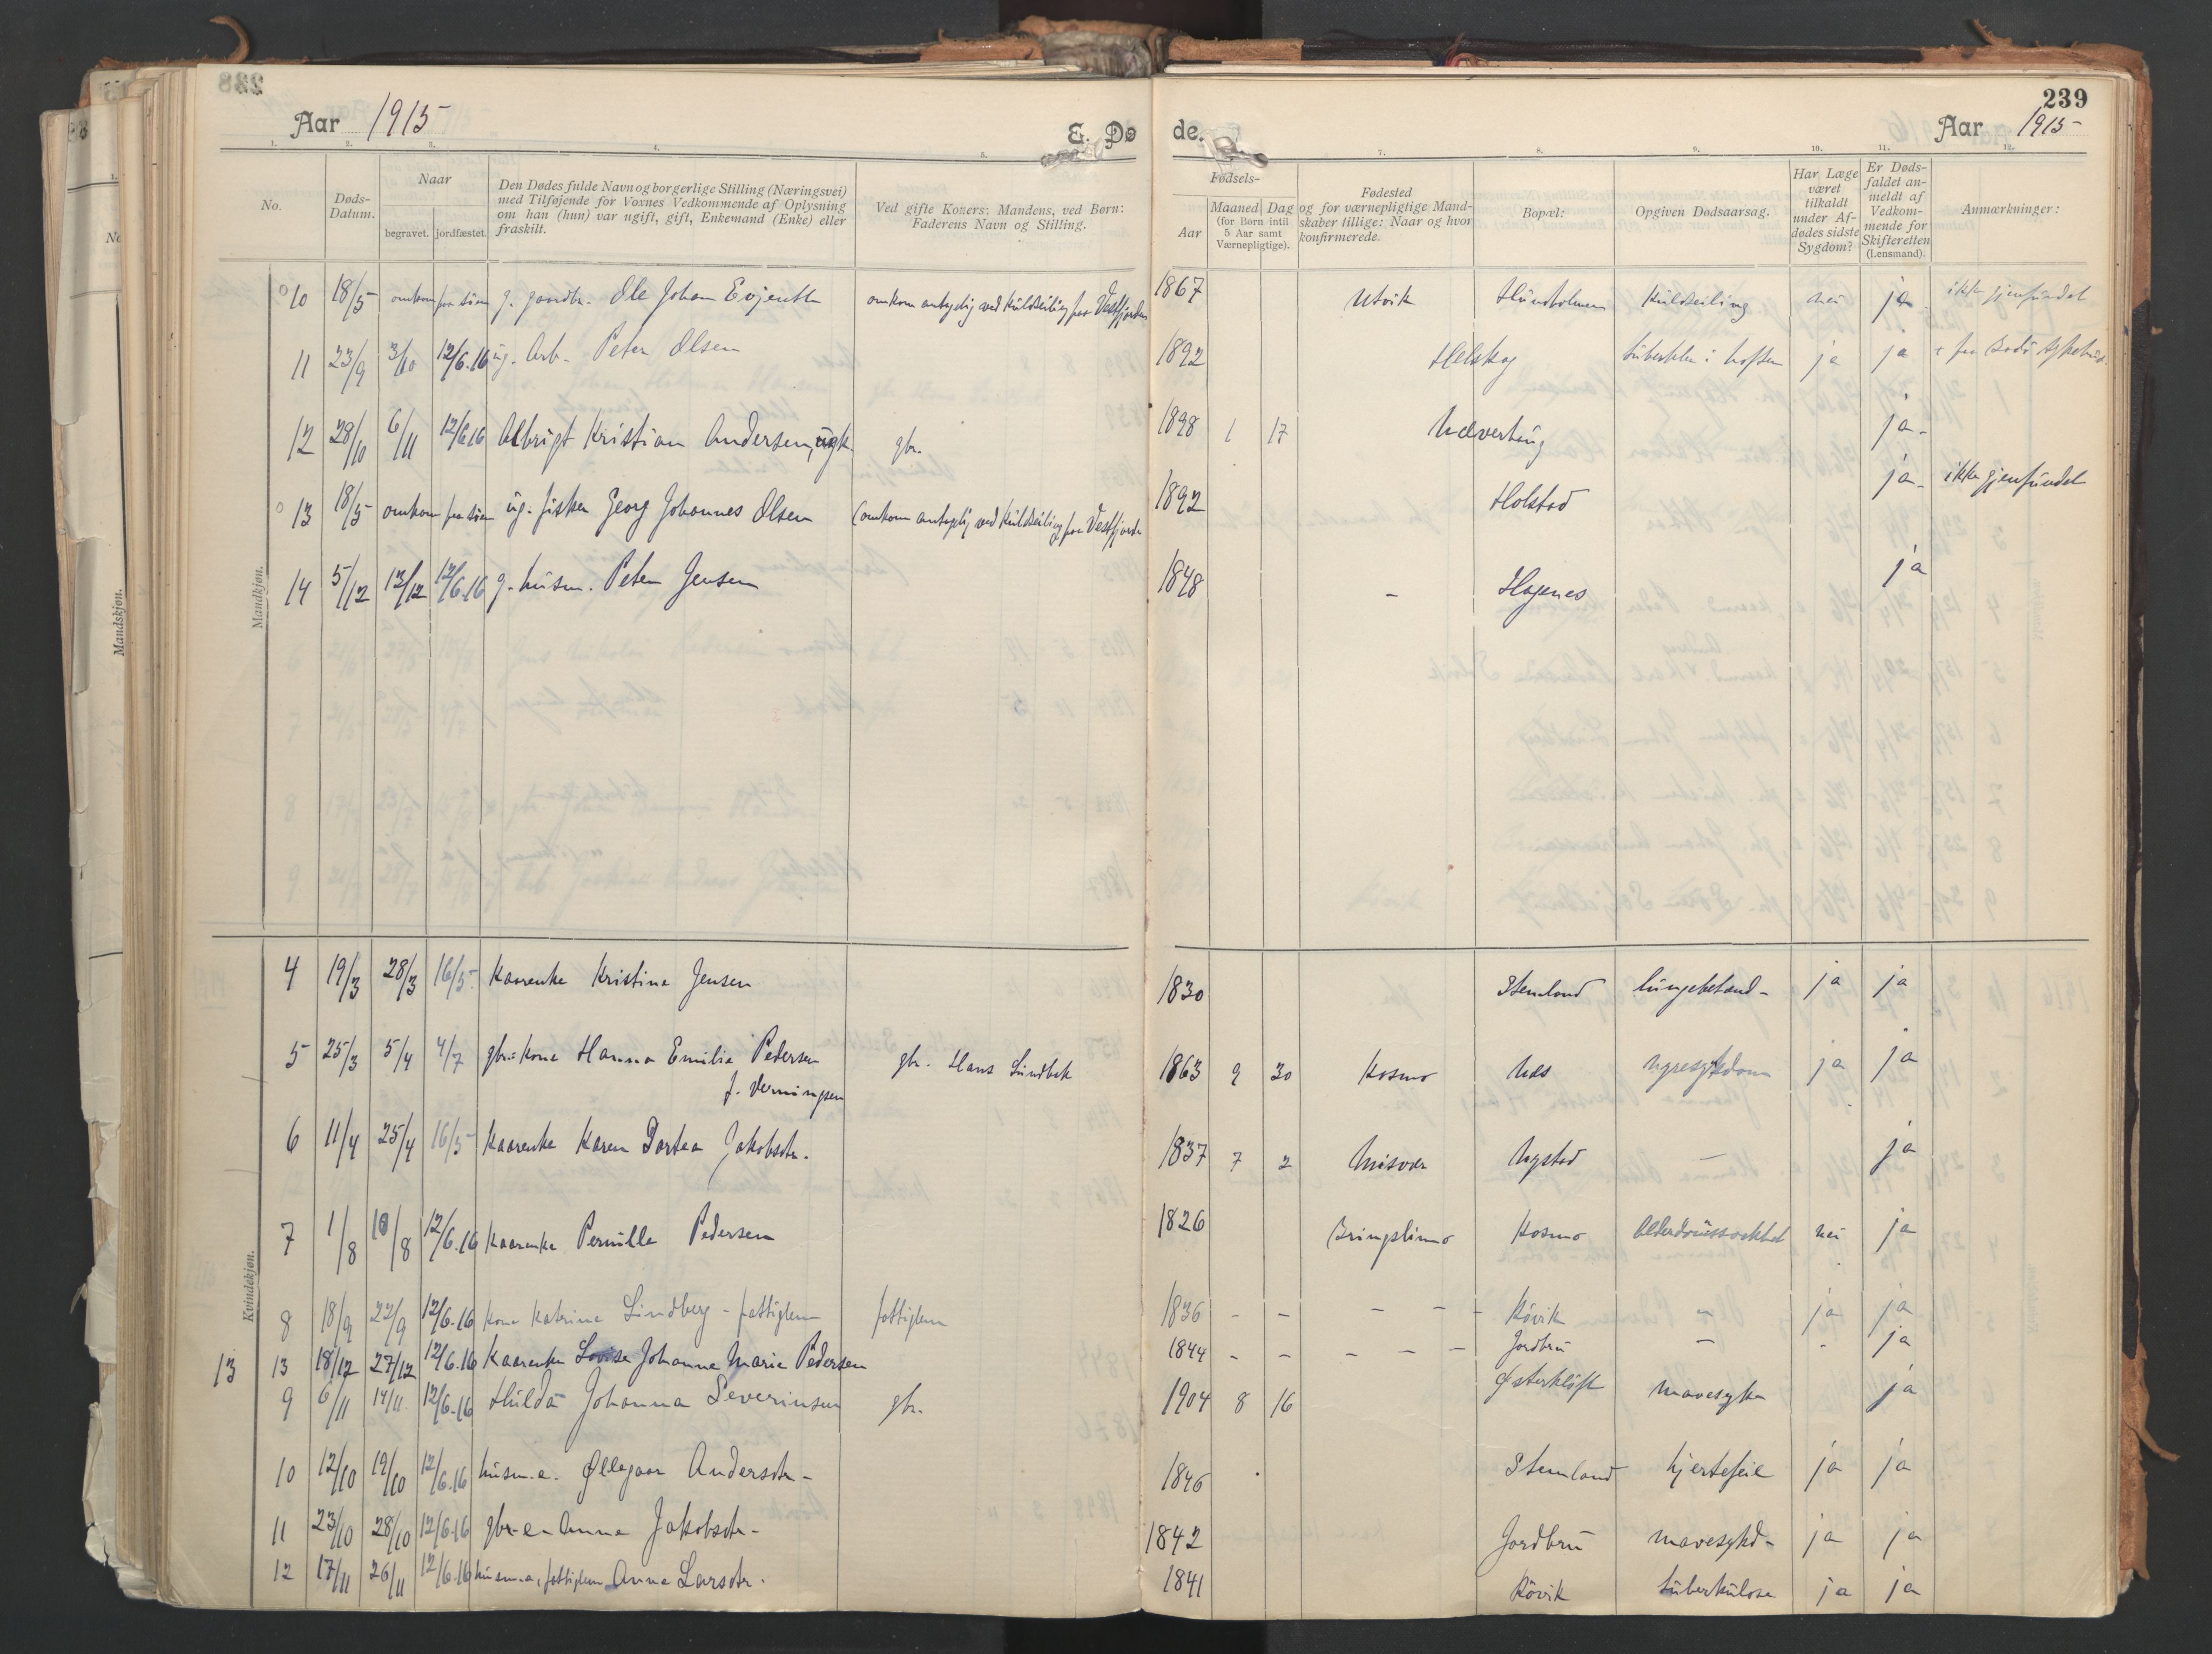 238
239
Aar 1915
E. Døde.
Aar 1915
1. 2. 3. 4. 5. 7. 8. 9. 10. 11. 12.
No.
Døds-
Datum.
Naar
begravet. jordfæstet.
Den Dødes fulde Navn og borgerlige Stilling (Næringsvei)
med Tilføjende for Voxnes Vedkommende af Oplysning
om han (hun) var ugift, gift, Enkemand (Enke) eller
fraskilt.
Ved gifte Koner: Mandens, ved Børn:
Faderens Navn og Stilling.
Fødsels-
Aar
Maaned Dag
(for Børn intil
5 Aar samt
Værnepligtige).
Fødested
og for værnepligtige Mand-
skaber tillige: Naar og hvor
konfirmerede.
Bopæl:
Opgiven Dødsaarsag.
Har Læge
været
tilkaldt
under Af-
dødes sidste
Sygdom?
Er Døds-
faldet an-
meldt af
Vedkom-
mende for
Skifteretten
(Lensmand).
Anmærkninger:
Mandskjøn.
Mandkjøn.
10 18/5 omkom paa søen g. gaardbr. Ole Johan Evjenth omkom antagelig ved kuldseiling paa Vestfjorden 1867 Utvik Hundholmen Kuldseiling nei ja ikke gjenfundet
11 23/9 3/10 12/6.16 ug. Arb. Peter Olsen 1892 Helskog tuberkler i hoften ja ja + paa Bodø Sykehus.
12 28/10 6/11 12/6.16 Albrigt Kristian Andersen, ugk gbr. 1898 1 17 Næverting ja
13 18/5 omkom paa søen ug. fisker Georg Johannes Olsen (omkom antagelig ved kuldseiling paa Vestfjorden 1892 Holstad ja ikke gjenfundet
14 5/12 12/12 12/6.16 g. husm. Peter Jensen 1848 - Hagenes ja
Kvindekjøn.
4 19/3 28/3 16/5 Kaarenke Kristine Jensen 1830 Stemland lungebetænd- ja ja
5 25/3 5/4 4/7 gbr.-kone Hanna Emilie Pedersen gbr. Hans Lundbak 1863 9 30 Kosmo Næs nyresykdom ja ja
f. Verningsen
6 11/4 25/4 16/5 Kaarenke Karen Dortea Jakobsdtr. 1837 7 2 Misvær Nystad - ja
7 1/8 18/8 12/6.16 Kaarenke Pernille Pedersen 1826 Bringslimo Kosmo Alderdomssvakhet nei ja
8 18/9 22/9 12/6.16 Kone Katrine Lindberg - fattiglem fattiglem 1836 - - - - - Kövik - ja ja
13 13 18/12 27/12 12/6.16 Kaarenke Lovise Johanne Marie Pedersen 1844 - - - - - Jordbru - - ja
9 6/11 14/11 12/6.16 Hulda Johanna Severinsen gbr. 1904 8 16 Østerkløft mavesyke ja
10 12/10 19/10 12/6.16 husm.e. Øllegaar Andersdtr- 1846 Stemland hjertefeil ja ja
11 23/10 28/10 12/6.16 gbr-e- Anna Jakobsdtr- 1842 Jordbru mavesykd- ja ja
12 17/11 26/11 12/6.16 husm.e, fattiglem Anne Larsdtr. 1841 Kövik tuberkulose ja ja